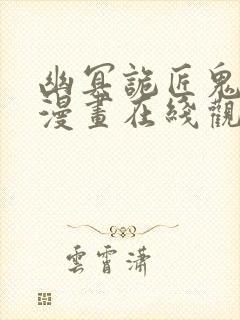 幽冥詭匠鬼
漫畫在綫觀
雲霄瀟